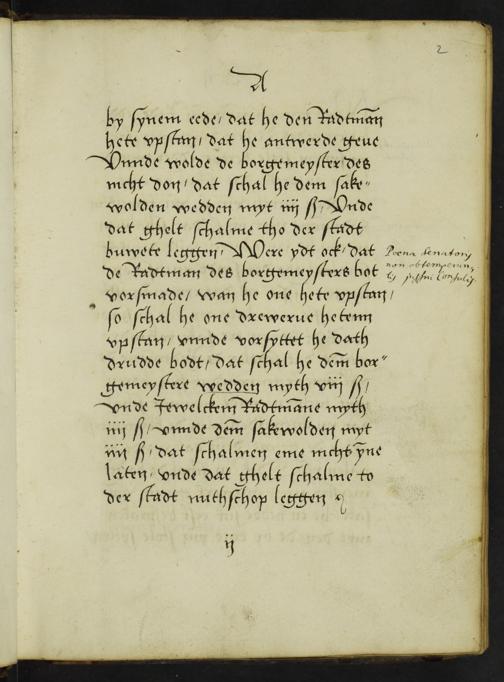 2
A
by synem eede / dat he den Radtmān
hete vpstan / dat he antwerde geue
Vnnde wolde de borgemeyster des
nicht don / dat schal he dem sake"
wolden wedden myt iiij ß / Vnde
dat ghelt schalme tho der stadt
buwete leggen / Were ydt ock / dat
de Radtman des borgemeysters bot
vorsmade / wan he one hete vpstan /
so schal he one drewerue hetenn
vpstan / vnnde vorsyttet he dath
drudde bodt / dat schal he dem̄ bor"
gemeystere wedden myth viij ß /
vnde Jewelckem Radtmāne myth
iiij ß / vnnde dem̄ sakewolden myt
iiij ß / dat schalmen eme nicht yne
laten / vnde dat ghelt schalme to
der stadt nuthschop leggen
Poena Senatoris
non obtemperan
tis jussui Consulis
ij